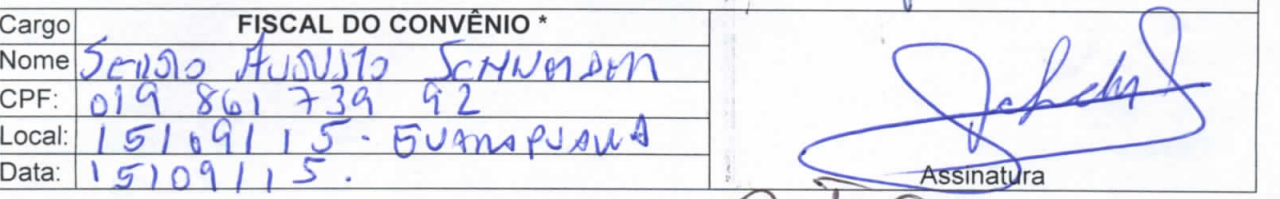 Cargo FISCAL DO CONVÊNIO *
Nome SERGIO AUGUSTO SCHNEIDER
CPF: 019 861 739 92
Local: 15/09/15 - GUARAPUAVA
Data: 15/09/15.
Assinatura